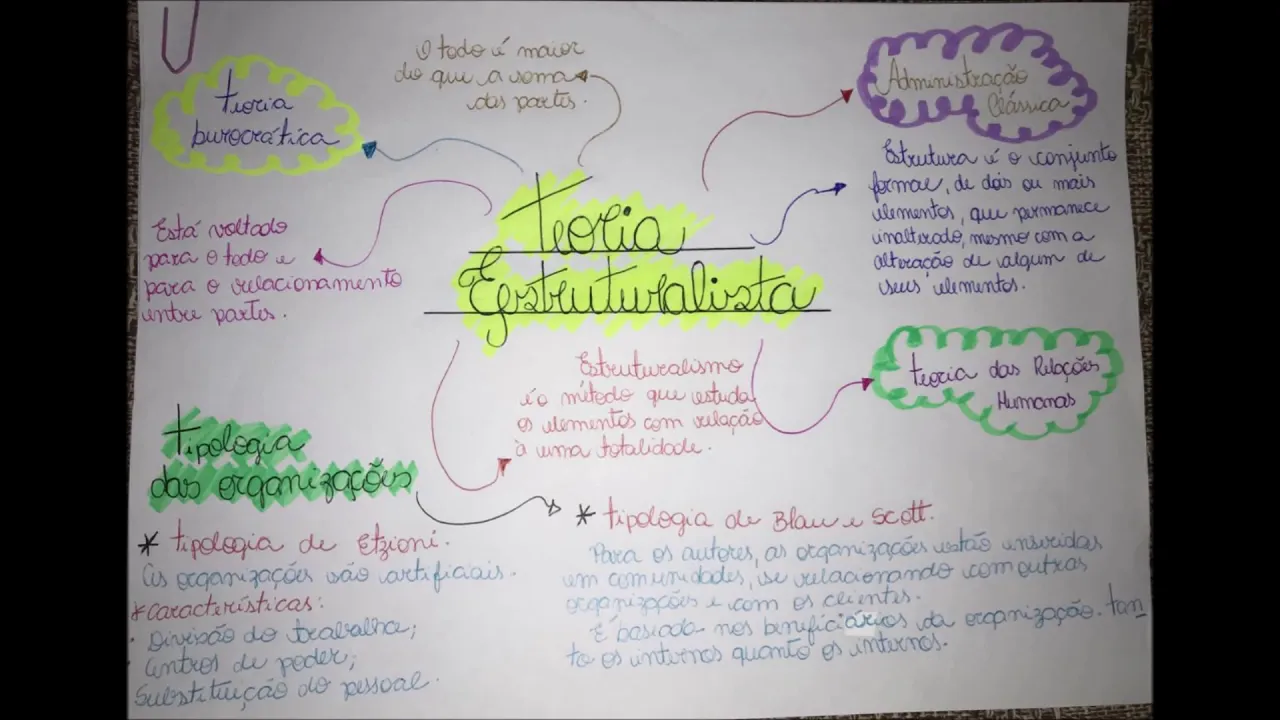 Teoria
burocrática
O todo é maior
do que a soma
das partes.
Administração
Clássica
Estrutura é o conjunto
formal, de dois ou mais
elementos, que permanece
inalterado, mesmo com a
alteração de algum de
seus elementos.
Está voltado
para o todo e
para o relacionamento
entre partes.
Teoria
Estruturalista
Estruturalismo
é o método que estuda
os elementos com relação
à uma totalidade.
Teoria das Relações
Humanas
Tipologia
das organizações
* Tipologia de Etzioni.
As organizações são artificiais.
* Características:
· Divisão do trabalho;
· Centros de poder;
Substituição do pessoal.
* Tipologia de Blau e Scott.
Para os autores, as organizações estão inseridas
em comunidades, se relacionando com outras
organizações e com os clientes.
É baseada nos beneficiários da organização. tan
to os internos quanto os internos.